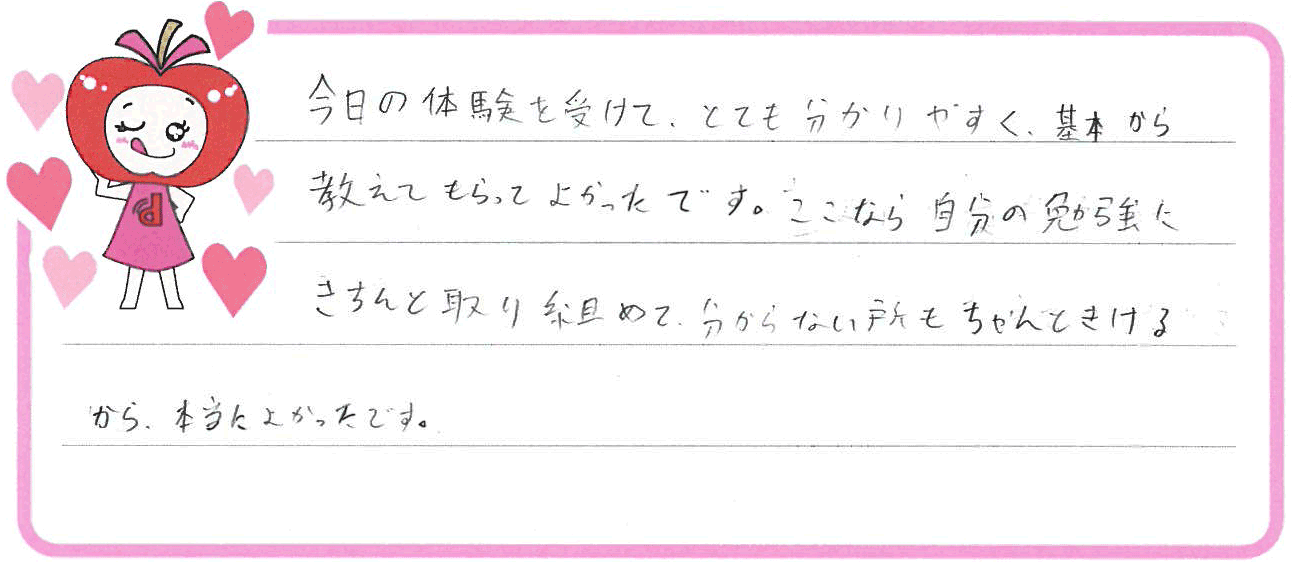 今日の体験を受けて、とても分かりやすく、基本から
教えてもらってよかったです。ここなら自分の勉強に
きちんと取り組めて、分からない所もちゃんときける
から、本当によかったです。